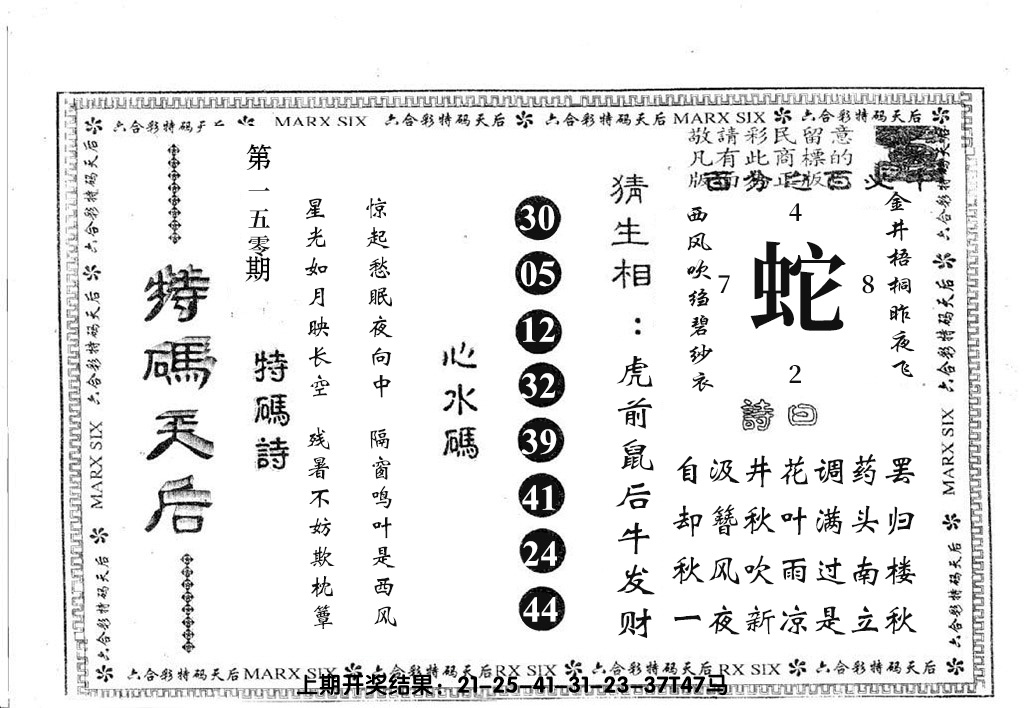 六合彩特码天后 MARX SIX 六合彩特码天后 六合彩特码天后 MARX SIX 六合彩特码天后
敬請彩民留意
凡有此商標的
版面为正版
金井梧桐昨夜飞
西风吹绉碧纱衣
4
7
蛇
8
2
詩曰
自汲井花调药罢
却簪秋叶满头归
秋风吹雨过南楼
一夜新凉是立秋
猜生相：虎前鼠后牛发财
30
05
12
32
39
41
24
44
心水碼
惊起愁眠夜向中 隔窗鸣叶是西风
星光如月映长空 残暑不妨欺枕簟
特碼詩
第一五零期
特碼天后
六合彩特码天后 MARX SIX 六合彩特码天后
六合彩特码天后 六合彩特码天后 MARX SIX 六合彩特码天后
六合彩特码天后 MARX SIX 六合彩特码天后 RX SIX 六合彩特码天后 RX SIX 六合彩特码天后
上期开奖结果：21-25-41-31-23-37T47马